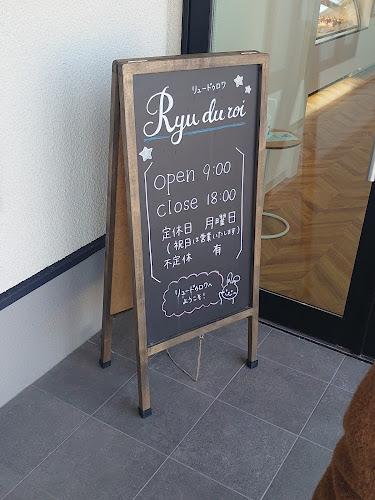 リュードゥロワ
Ryu du roi
open 9:00
close 18:00
定休日 月曜日
(祝日は営業いたします)
不定休 有
リュードゥロワへ
ようこそ!